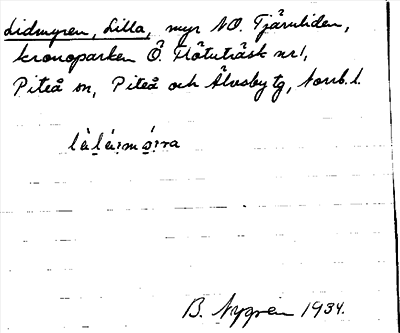 Lidmyren, Lilla, myr NO. Tjärnliden,
kronoparken Ö. Flötuträsk nr 1,
Piteå sn, Piteå och Älvsby tg, Norrb. l.
B. Nygren 1934.